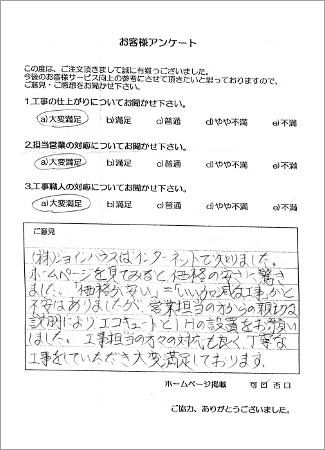 お客様アンケート
この度は、ご注文頂きまして誠に有難うございました。
今後のお客様サービス向上の参考にさせて頂きたいと思っておりますので、
ご意見・ご感想をお聞かせ下さい。
1.工事の仕上がりについてお聞かせ下さい。
a)大変満足 b)満足 c)普通 d)やや不満 e)不満
2.担当営業の対応についてお聞かせ下さい。
a)大変満足 b)満足 c)普通 d)やや不満 e)不満
3.工事職人の対応についてお聞かせ下さい。
a)大変満足 b)満足 c)普通 d)やや不満 e)不満
ご意見
(株)ジョインハウスはインターネットで知りました。
ホームページを見てみると、価格の安さに驚き
ました。「価格が安い」=「いい加減な工事」かと
不安はありましたが、営業担当の方からの親切な
説明によりエコキュートとIHの設置をお願い
しました。工事担当の方々の対応も良く、丁寧な
工事をしていただき大変満足しております。
ホームページ掲載 可 否
ご協力、ありがとうございました。